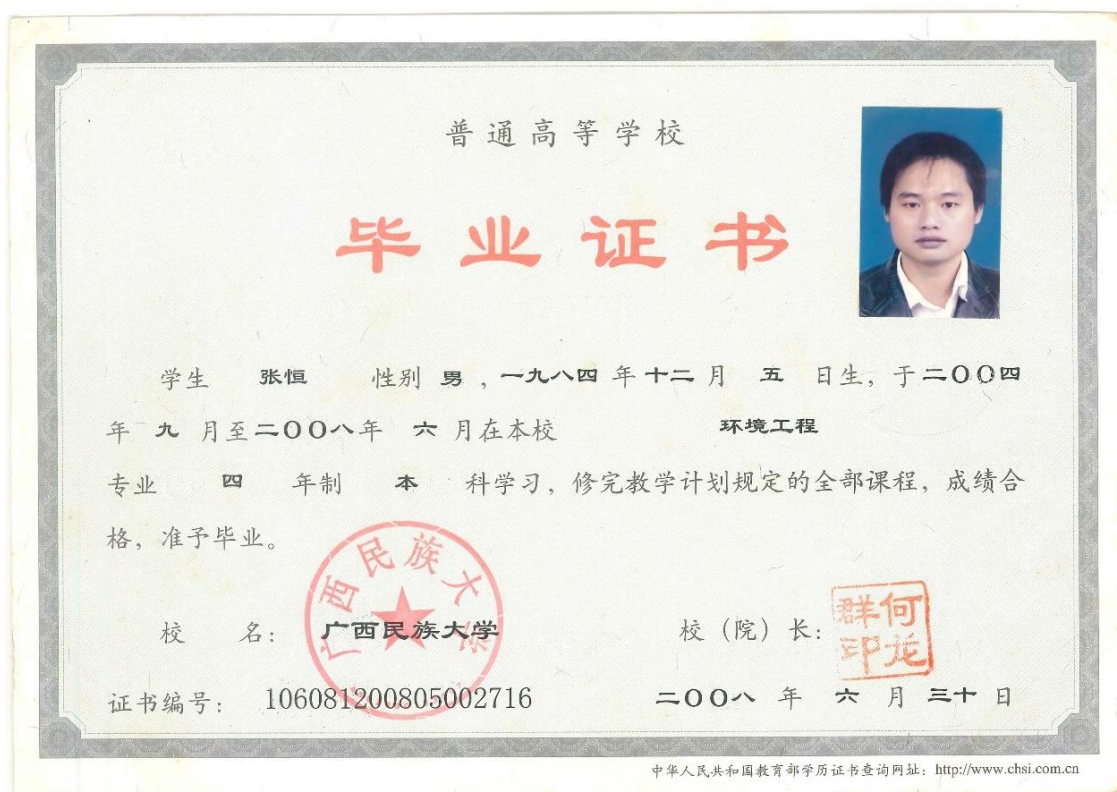 普通高等学校
毕业证书
学生 张恒 性别 男 ，一九八四 年 十二 月 五 日生，于 二〇〇四
年 九 月至 二〇〇八 年 六 月在本校 环境工程
专业 四 年制 本 科学习，修完教学计划规定的全部课程，成绩合
格，准予毕业。
广西民族大学
校 名： 广西民族大学
校（院）长：
何龙群印
证书编号： 106081200805002716
二〇〇八 年 六 月 三十 日
中华人民共和国教育部学历证书查询网址：http://www.chsi.com.cn